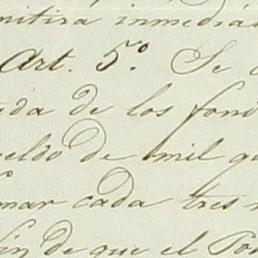 mitira inmediá
Art. 5º. Se
ada de los fon
eldo de mil
mar cada tres
fin de que el Po